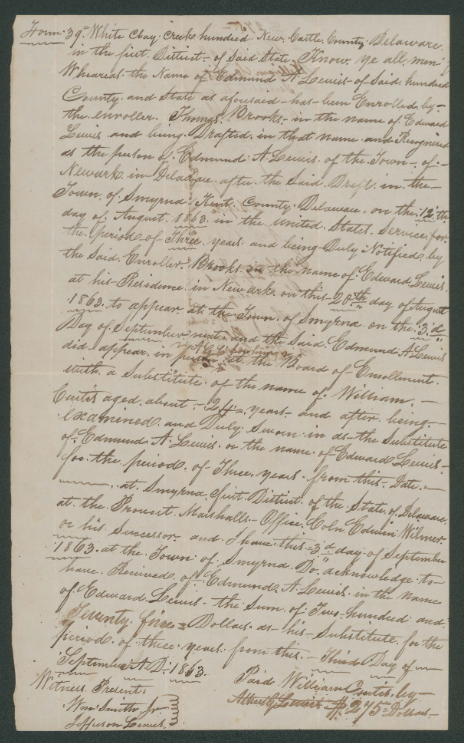 Form 39 White Clay Creek hundred New Castle County Delaware
in the first District of Said State Know ye all men
Whereas the Name of Edmund A Lewis of Said hundred
County and State as aforesaid has been Enrolled by
the enroller Brooks in the name of Edward
Lewis and being Drafted in that name and Recognised
as the person of Edmund A Lewis of the Town of
Newark in Delaware after the Said Draft in the
Town of Smyrna Kent County Delaware on the 12th
day of August 1863 in the United States Service for
the period of Three years and being Duly Notified by
the Said Enroller Brooks in the name of Edward Lewis
at his Residence in Newark on this 20th day of August
1863 to appear at the Town of Smyrna on the 3d
Day of September and the Said Edmund A Lewis
did appear in person at the Board of Enrollment
with a Substitute of the name of William
Curtis aged about 24 years and after being
examined and Duly Sworn in as the Substitute
of Edmund A. Lewis in the name of Edward Lewis
for the period of Three years from this Date
at Smyrna first District of the State of Delaware
at the Provost Marshalls Office Coln Edwin Wilmer
or his Successor and I have this 3d day of September
1863 at the Town of Smyrna Do acknowledge to
have Received of Edmund A Lewis in the name
of Edward Lewis the Sum of Two hundred and
Seventy five Dollars as his Substitute for the
period of three years from this Third Day of
September A.D. 1863
Witness Present Paid William Curtis by
Wm Smith Jr Lewis $275 Dollars
Jefferson Lewis